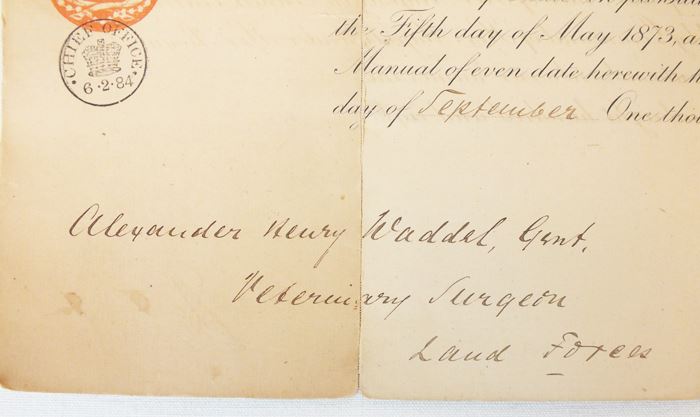 CHIEF OFFICE
6·2·84
the Fifth day of May 1873, a
Manual of even date herewith
day of September One thou
Alexander Henry Waddel, Gent.
Veterinary Surgeon
Land Forces